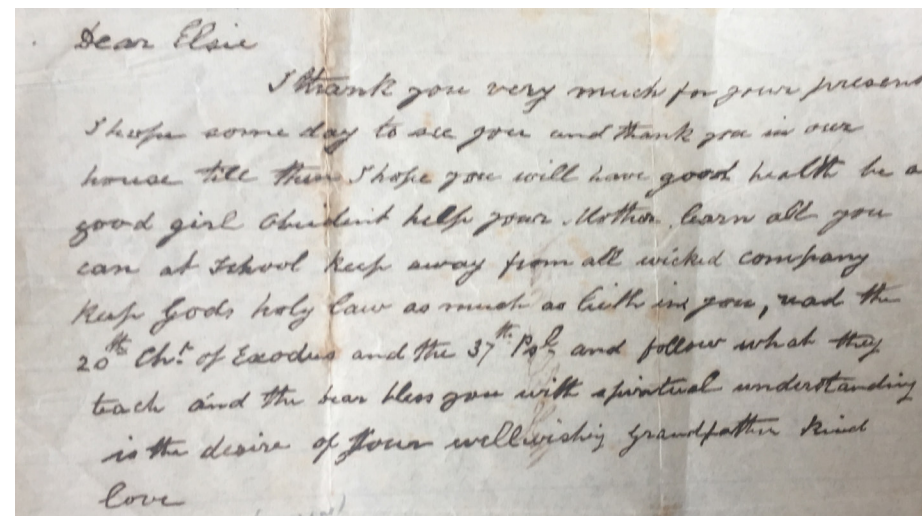 Dear Elsie
I thank you very much for your present
I hope some day to see you and thank you in our
house till then I hope you will have good health be a
good girl obedient help your Mother learn all you
can at School keep away from all wicked company
keep Gods holy law as much as lieth in you, read the
20th Chr of Exodus and the 37th Psl and follow what they
teach and the bless you with spiritual understanding
is the desire of your wellwishing grandfather kind
love